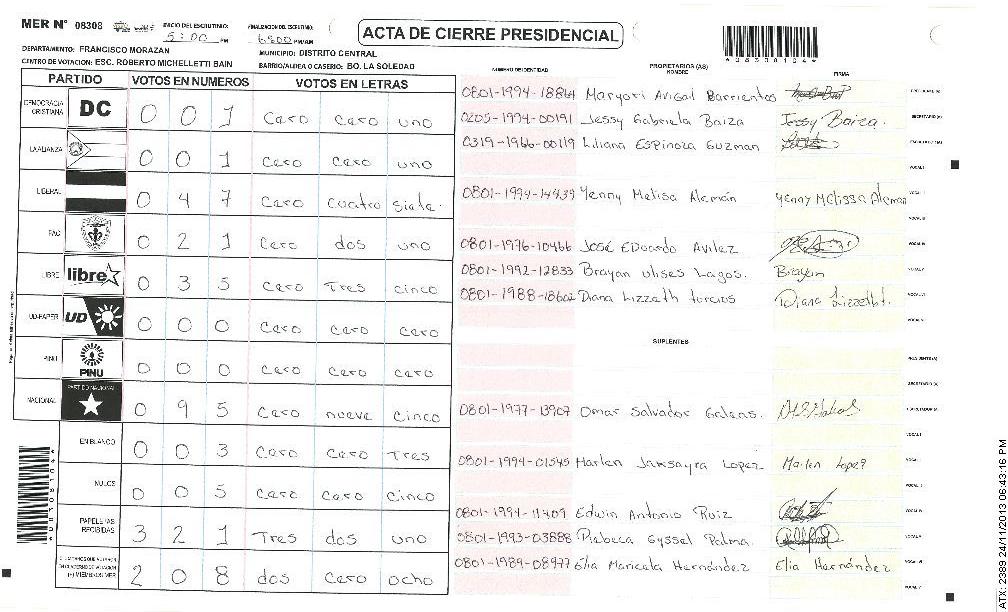 MER N° 08308
INICIO DEL ESCRUTINIO:
5:00 PM
FINALIZACION DEL ESCRUTINIO:
PM/AM
ACTA DE CIERRE PRESIDENCIAL
*08308104*
DEPARTAMENTO: FRANCISCO MORAZAN
MUNICIPIO: DISTRITO CENTRAL
CENTRO DE VOTACION: ESC. ROBERTO MICHELLETTI BAIN
BARRIO/ALDEA O CASERIO: BO. LA SOLEDAD
NUMERO DE IDENTIDAD
PROPIETARIOS (AS)
NOMBRE
FIRMA
PARTIDO VOTOS EN NUMEROS VOTOS EN LETRAS
DEMOCRACIA CRISTIANA DC 0 0 1 Cero cero uno
LA ALIANZA 0 0 1 Cero cero uno
LIBERAL 0 4 7 Cero cuatro siete
PAC 0 2 1 Cero dos uno
LIBRE libre 0 3 5 Cero Tres cinco
UD-FAPER UD 0 0 0 Cero cero cero
PINU PINU 0 0 0 Cero cero cero
NACIONAL PARTIDO NACIONAL 0 9 5 Cero nueve cinco
EN BLANCO 0 0 3 Cero cero Tres
NULOS 0 0 5 Cero cero cinco
PAPELETAS RECIBIDAS 3 2 1 Tres dos uno
(+) MIEMBROS MER 2 0 8 dos cero ocho
0801-1994-18864 Maryori Avigal Barrientos
0205-1994-00191 Jessy Gabriela Baiza Jessy Baiza.
0319-1966-00119 Liliana Espinoza Guzman
0801-1994-14439 Yenny Melisa Alemán Yenny Melissa Aleman
0801-1976-10466 José Eduardo Avilez
0801-1992-12833 Brayan Ulises Lagos. Brayan
0801-1988-18602 Diana Lizzeth Turcios Diana Lizzeth t.
SUPLENTES
0801-1977-13907 Omar Salvador
0801-1994-01545 Lopez Marlen Lopez
0801-1994-11409 Edwin Antonio Ruiz
0801-1993-03888 Rebeca Gyssel Palma.
0801-1989-08977 Elia Maricela Hernández Elia Hernández
*08308104*
ATX: 2389 24/11/2013 06:43:16 PM